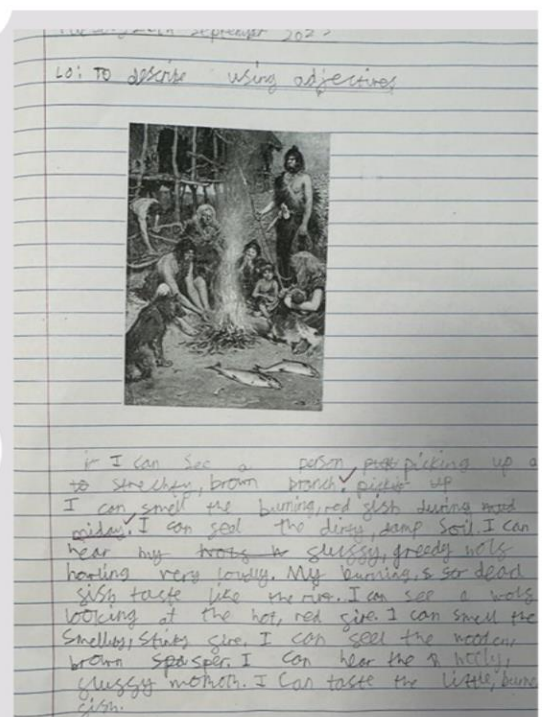 September 202
LO: TO describe using adjectives
I can see a person picking up a
to stretchey, brown branch. pickig up
I can smell the burning, red gish during mid
miday. I can geal the dirty, damp soil. I can
hear my gluggy, greedy wolg
howling very loudly. My burning, dead
gish taste like the rive. I can see a wolg
looking at the hot, red gire. I can smell the
smelley, stinky gire. I can geel the wooden,
brown sper. I can hear the wooly,
gluggy momoth. I can taste the little, burne
gish.